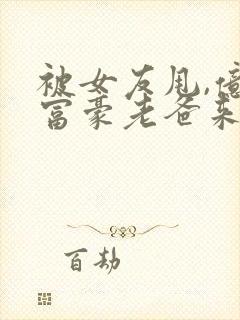 被女友甩,
富豪老爸来
百劫